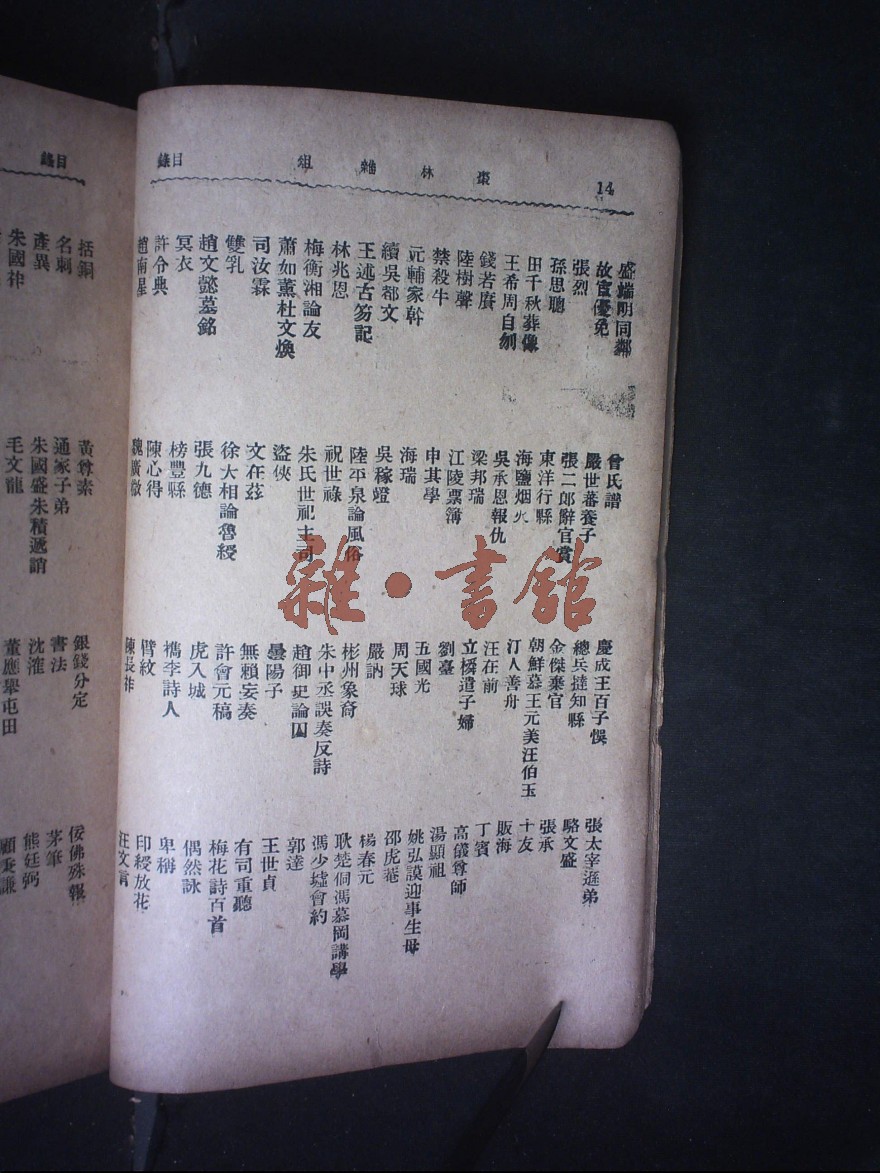 14
棗林雜俎
目錄
盛端明同鄰 曾氏譜 慶成王百子悞 張太宰遜弟
故宦優免 嚴世蕃養子 總兵撻知縣 駱文盛
張烈 張二郎辭官賞 金傑棄官 張承
孫思聰 東洋行縣 朝鮮慕王元美汪伯玉 十友
田千秋葬像 海鹽烟火 汀人善舟 販海
王希周自刎 吳承恩報仇 汪在前 丁賓
錢若賡 梁邦瑞 遺子婦 高儀尊師
陸樹聲 江陵票簿 劉臺 湯顯祖
禁殺牛 申其學 五國光 姚弘謨迎事生母
元輔家幹 海瑞 周天球 邵虎菴
續吳都文 吳稼竳 嚴訥 楊春元
王述古笏記 陸平泉論風俗 彬州象奇 耿楚侗馮慕岡講學
林兆恩 祝世祿 朱中丞誤奏反詩 馮少墟會約
梅衡湘論友 朱氏世祀主司 趙御史論囚 郭達
蕭如薰杜文煥 盜俠 曇陽子 王世貞
司汝霖 文在茲 無賴妄奏 有司重聽
雙乳 徐大相論魯綬 許會元稿 梅花詩百首
趙文懿墓銘 張九德 虎入城 偶然詠
冥衣 榜豐縣 檇李詩人 卑稱
許令典 陳心得 臂紋 印綬放花
趙南星 魏廣微 陳長祚 汪文言
目錄
括銅 黃尊素 銀錢分定 佞佛殊報
名刺 通家子弟 書法 茅筆
產異 朱國盛朱積遞誚 沈㴶 熊廷弼
朱國祚 毛文龍 董應舉屯田 顧秉謙
雜·書館